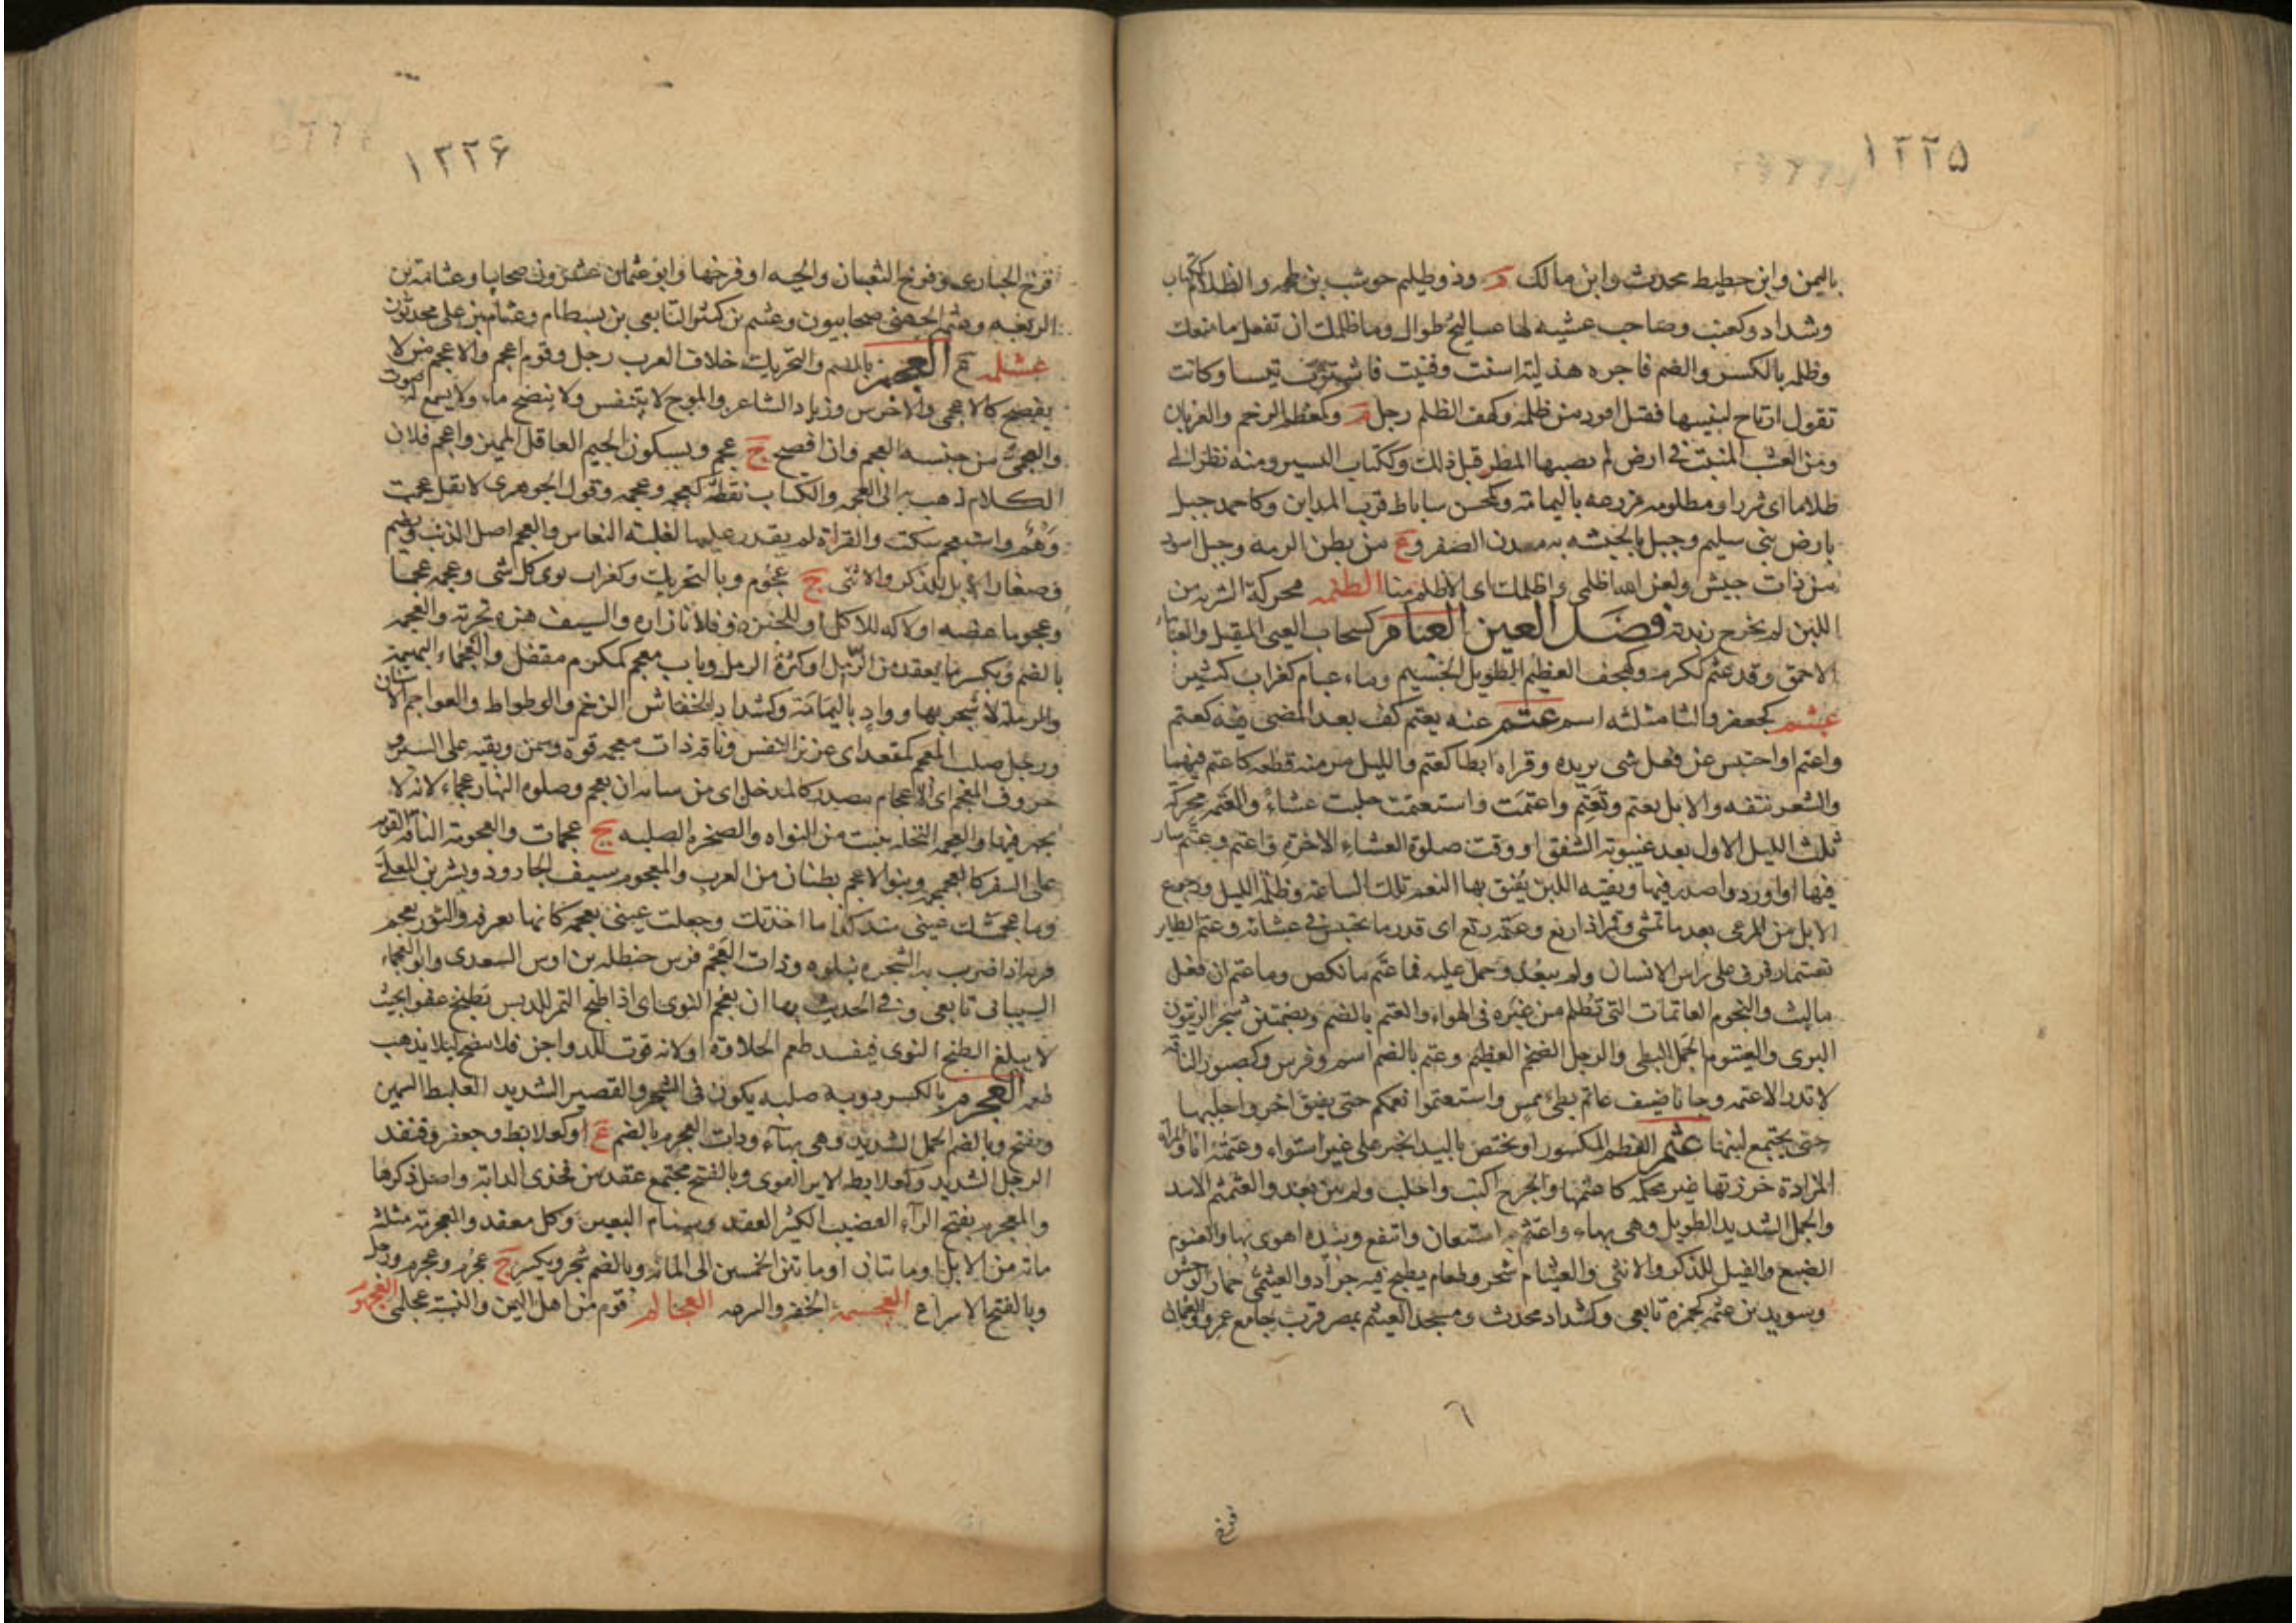 ١٢٢٥
باليمن وابن حطيط محدث وابن مالك م وذو ظليم حوشب بن طخمه والظلام ككتاب
وشداد وكعنب وصاحب عشبه لها عساليج طوال وما ظلمك ان تفعل ما منعك
وظلمه بالكسر والضم فاجره هذليه اسنت وفنيت فاشترت تيسا وكانت
تقول ارتاح لنبيبها فقيل اقود من ظلمه وكهف الظلم رجل م وكمعظم الرخم والغربان
ومن العشب المنبت في ارض لم يصبها المطر قبل ذلك وككتاب اليسير ومنه نظر الي
ظلاما اى شزرا ومظلومه مزرعه باليمامة وكمحسن ساباط قرب المداين وكاحمد جبل
بارض بنى سليم وجبل بالحبشه به معدن الصفر وع من بطن الرمه وجبل اسود
من ذات جيش ولعن الله اظلمى واظلمك اى الاظلم منا الظلمه محركة الشربه من
اللبن لم يخرج زبدته فصل العين العبام كسحاب العيى الثقيل والعباماء
الاحمق وقد عبم ككرم وكهجف العظيم الطويل الجسيم وماء عبام كغراب كثير
عبثم كجعفر والثا مثلثه اسم عتم عنه يعتم كف بعد المضى فيه كعتم
واعتم او احتبس عن فعل شى يريده وقراه ابطا كعتم والليل مر منه قطعه كاعتم فيهما
والشعر نتفه والابل يعتم وتعتم واعتمت واستعتمت حلبت عشاء والعتمه محركة
ثلث الليل الاول بعد غيبوبة الشفق او وقت صلوة العشاء الاخرة واعتم وعتم سار
فيها او اورد واصدر فيها وبقيه اللبن يفيق بها النعم تلك الساعة وظلمه الليل ورجوع
الابل من المرعى بعد ما تمشى وقمراذ اربع وعتمه ربع اى قدر ما يحتبس في عشائه وعتم الطاير
تعتيما رفرف على راس الانسان ولم يبعد وحمل عليه فما عتم ما نكص وما عتم ان فعل
ما لبث والنجوم العاتمات التى تظلم من غبره فى الهواء والعتم بالضم وبضمتين شجر الزيتون
البرى والعيتوم الجمل البطى والرجل الضخم العظيم وعتم بالضم اسم وفرس وكصبور الناقه
لا تدر الا عتمه وجانا ضيف عاتم بطئ ممس واستعتموا نعمكم حتى يفيق اخر واحلبها
حتى يجتمع لبنها عثم العظم المكسور او يختص باليد انجبر على غير استواء وعثمته انا والمرأه
المزادة خرزتها غير محكمه كاعتثمها والجرح اكنب واجلب ولم يبر بعد والعثمثم الاسد
والجمل الشديد الطويل وهى بهاء واعتثم به استعان وانتفع وبيده اهوى بها والعيثوم
الضبع والفيل للذكر والانثى والعيثام شجر وطعام يطبخ فيه جراد والعيثمى حمار الوحش
وسويد بن عثمه كحمزة تابعى وكشداد محدث ومسجد العيثم بمصر قرب جامع عمرو والعثمان
١٢٢۶
فرخ الحبارى وفرخ الثعبان والحيه او فرخها وابو عثمان عشرون صحابيا وعثامة بن
الربعه وعثم الجهنى صحابيون وعثيم بن كثير التابعى بن بسطام وعثام بن على محدثون
عثلمه ع العجم بالضم والتحريك خلاف العرب رجل وقوم اعجم والاعجم من لا
يفصح كالاعجمى والاخرس وزياد الشاعر والموج لا يتنفس ولا ينضح ماء ولا يسمع له صوت
والعجمى من جنسه العجم وان افصح ج عجم وبسكون الجيم العاقل المميز واعجم فلان
الكلام ذهب به الى العجمه والكتاب نقطه كعجمه وعجمه وقول الجوهرى لا تقل عجمت
وهم واستعجم سكت والقراة لم يقدر عليها لغلبة النعاس والعجم اصل الذنب ويضم
وصغار الابل للذكر والانثى ج عجوم وبالتحريك وكغراب نوى كل شى وعجمه عجما
وعجوما عضه او لاكه للاكل او للخبرة وفلانا رازه والسيف هزه تجربة والعجمه
بالضم ويكسر ما يعقد من الرمل او كثرة الرمل وباب معجم كمكرم مقفل والعجماء البهيمه
والرملة لا شجر بها وواد باليمامة وكشداد الخفاش الزخم والوطواط والعواجم الاسنان
ورجل صلب المعجم كمقعد اى عزيز النفس وناقة ذات معجمه قوة وسمن وبقيه على السير
حروف المعجم اى الاعجام مصدر كالمدخل اى من شانه ان يعجم وصلوة النهار عجماء لانه لا
يجهر فيها والعجمه النخلة ينبت من النواه والصخره الصلبه ج عجمات والعجومة الناقه القويه
على السفر كالعجمجمه وبنو الاعجم بطنان من العرب والمعجوم سيف الجارود وبشر بن المعلى
وما عجمتك عينى منذ كذا ما اخذتك وجعلت عينى تعجمه كانها تعرفه والثور يعجم
قرنه اذا ضرب به الشجره يبلوه وذات العجم فرس حنظله بن اوس السعدى وابو العجماء
السيبانى تابعى وفي الحديث نهانا ان نعجم النوى اى اذا طبخ التمر للدبس يطبخ عفوا بحيث
لا يبلغ الطبخ النوى فيفسد طعم الحلاوة او لانه قوت للدواجن فلا ينضج ليلا يذهب
طعمه العجرم بالكسر دويبه صلبه يكون فى الشجر والقصير الشديد الغليظ السمين
ويفتح وبالضم الجمل الشديد وهى بهاء وذات العجرم بالضم ع او كعلابط وجعفر وقنفد
الرجل الشديد وكعلابط الاير القوى وبالفتح مجتمع عقد بين فخذى الدابة واصل ذكرها
والمعجرم بفتح الرآء القضيب الكثير العقد وسنام البعير وكل معقد والعجرمة مثلثه
مائة من الابل او ما ئتان او ما بين الخمسين الى المائة وبالضم شجر ويكسر ج عجرم وعجرم ورجل
وبالفتح الاسراع العجسمه الخفه والسرعه العجالم قوم من اهل اليمن والنسبة عجلمى العجهوم